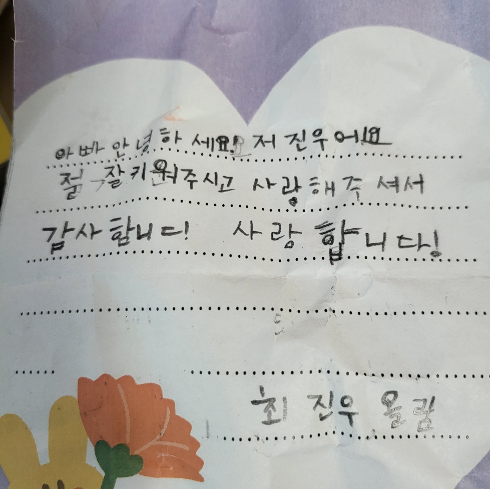 아빠 안녕하세요! 저 진우에요
절 잘 키워주시고 사랑해주셔서
감사합니다! 사랑합니다!
최진우 올림